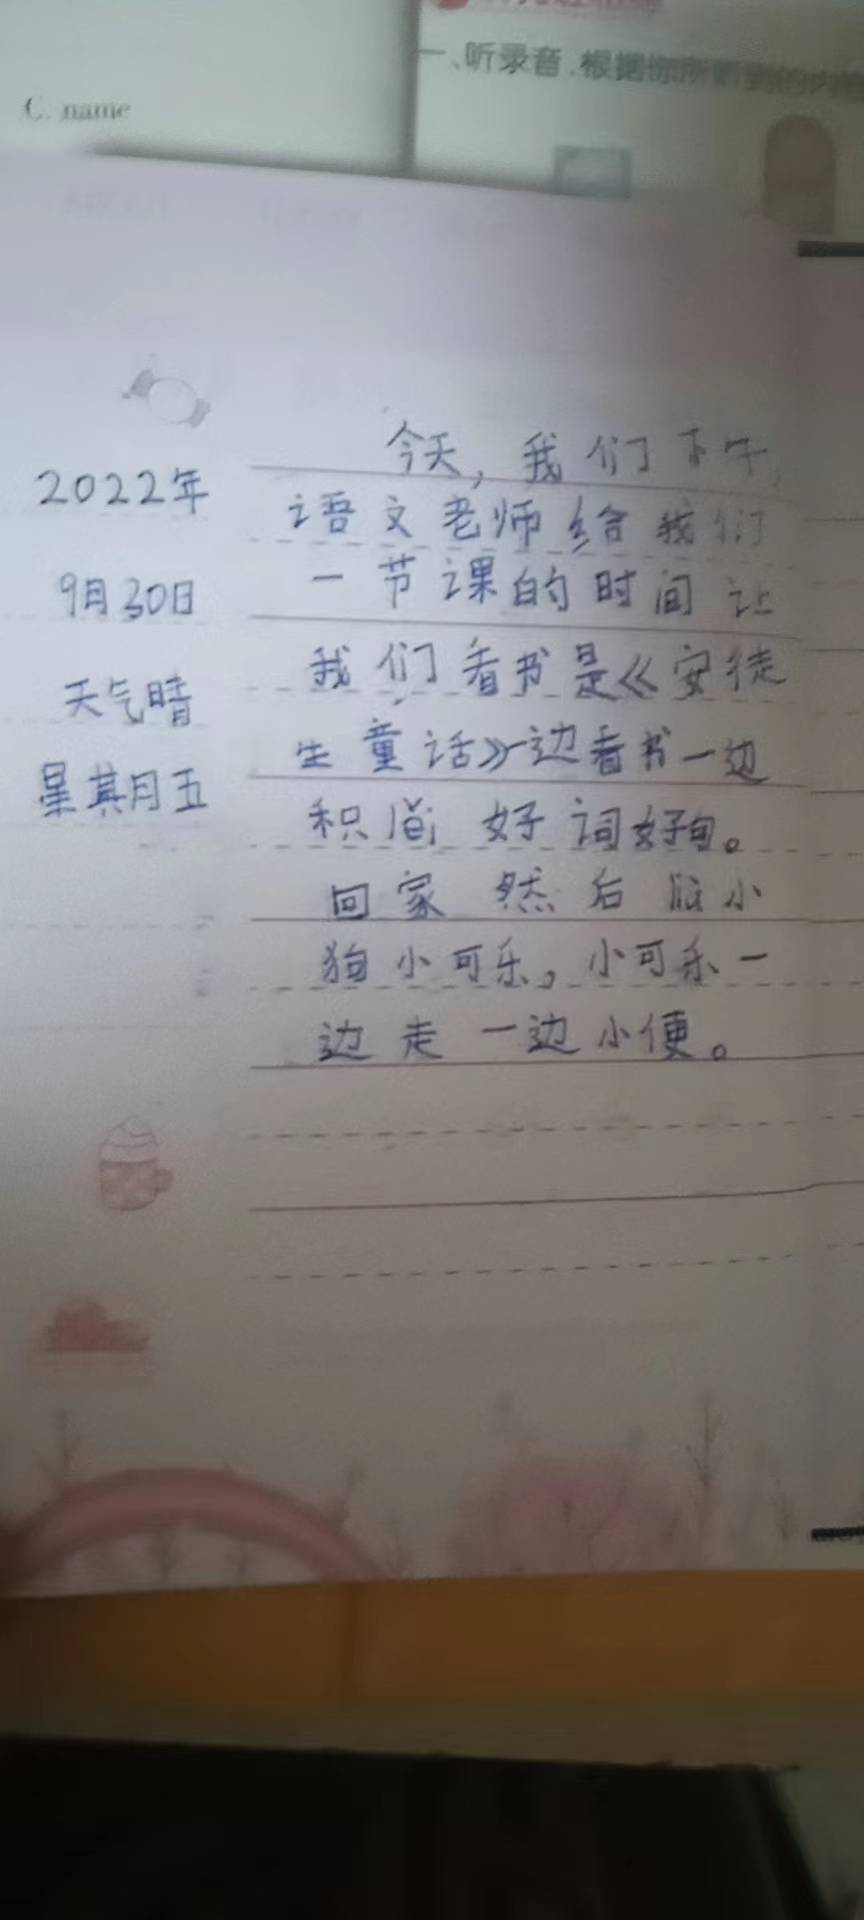 C. name
一、听录音,根据你所听到的内容
2022年
9月30日
天气晴
星其月五
今天，我们下午，
语文老师给我们
一节课的时间让
我们看书是《安徒
生童话》一边看书一边
积 好词好句。
回家然后 小
狗小可乐，小可乐一
边走一边小便。